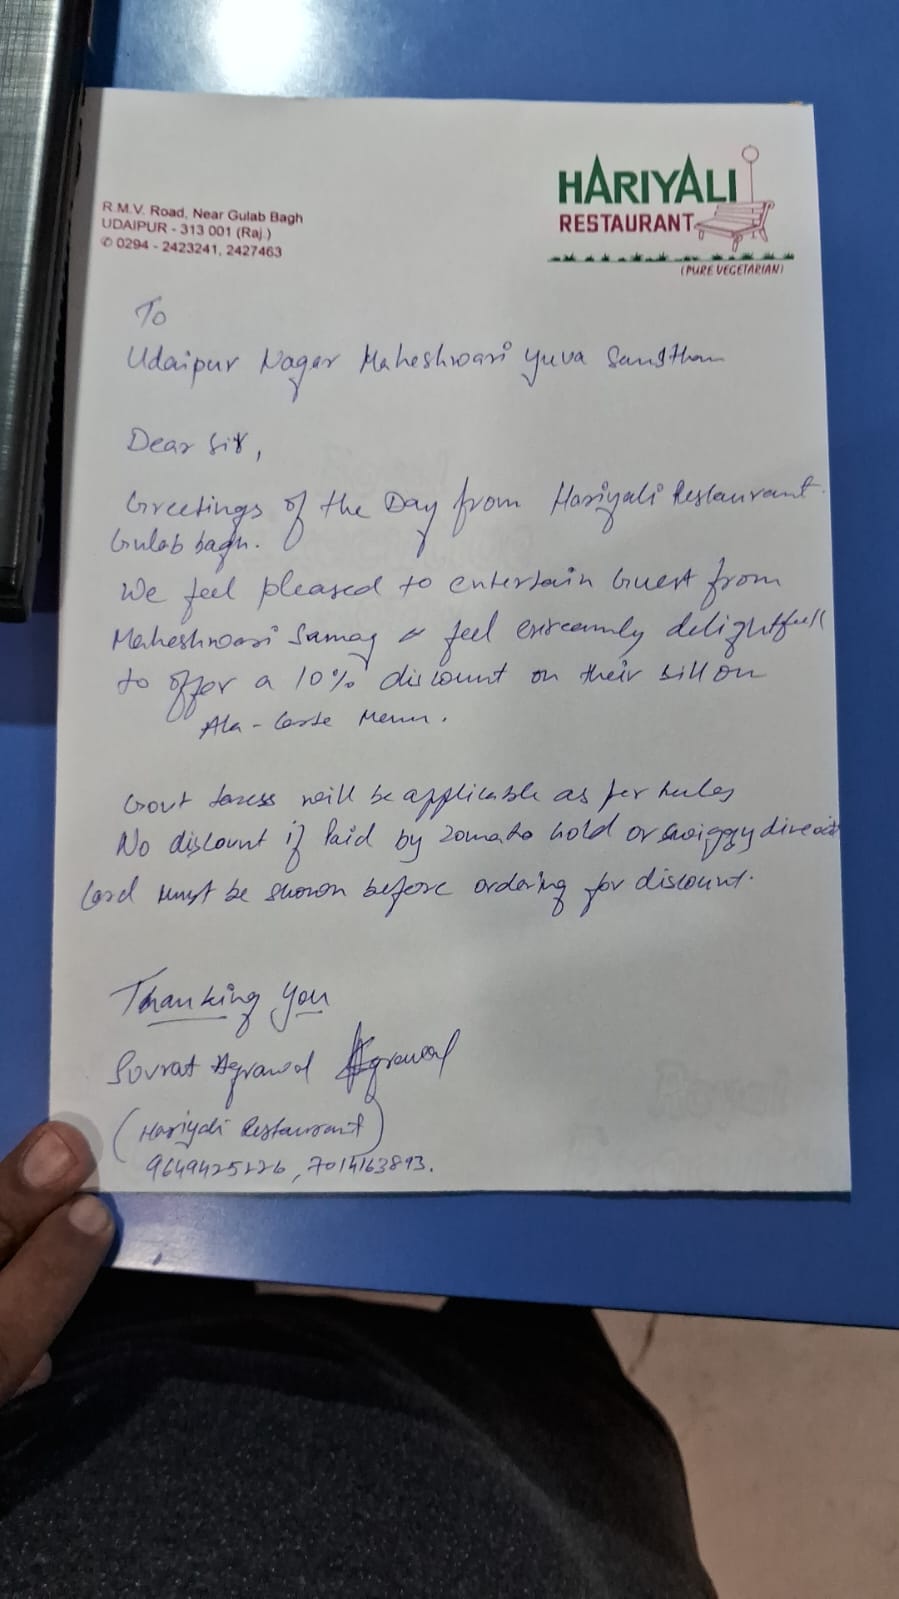 HARIYALI
RESTAURANT
(PURE VEGETARIAN)
R.M.V. Road, Near Gulab Bagh
UDAIPUR - 313 001 (Raj.)
✆ 0294 - 2423241, 2427463
To
Udaipur Nagar Maheshwari Yuva Sangthan
Dear Sir,
Greetings of the Day from Hariyali Restaurant
Gulab bagh.
We feel pleased to entertain Guest from
Maheshwari Samaj & feel extreamly delightfull
to offer a 10% discount on their bill on
Ala-Carte Menu.
Govt taxess will be applicable as per rules
No discount if Paid by Zomato Gold or Swiggy
Card must be shown before ordering for discount.
Thanking You
Suvrat Agrawal Agrawal
(Hariyali Restaurant)